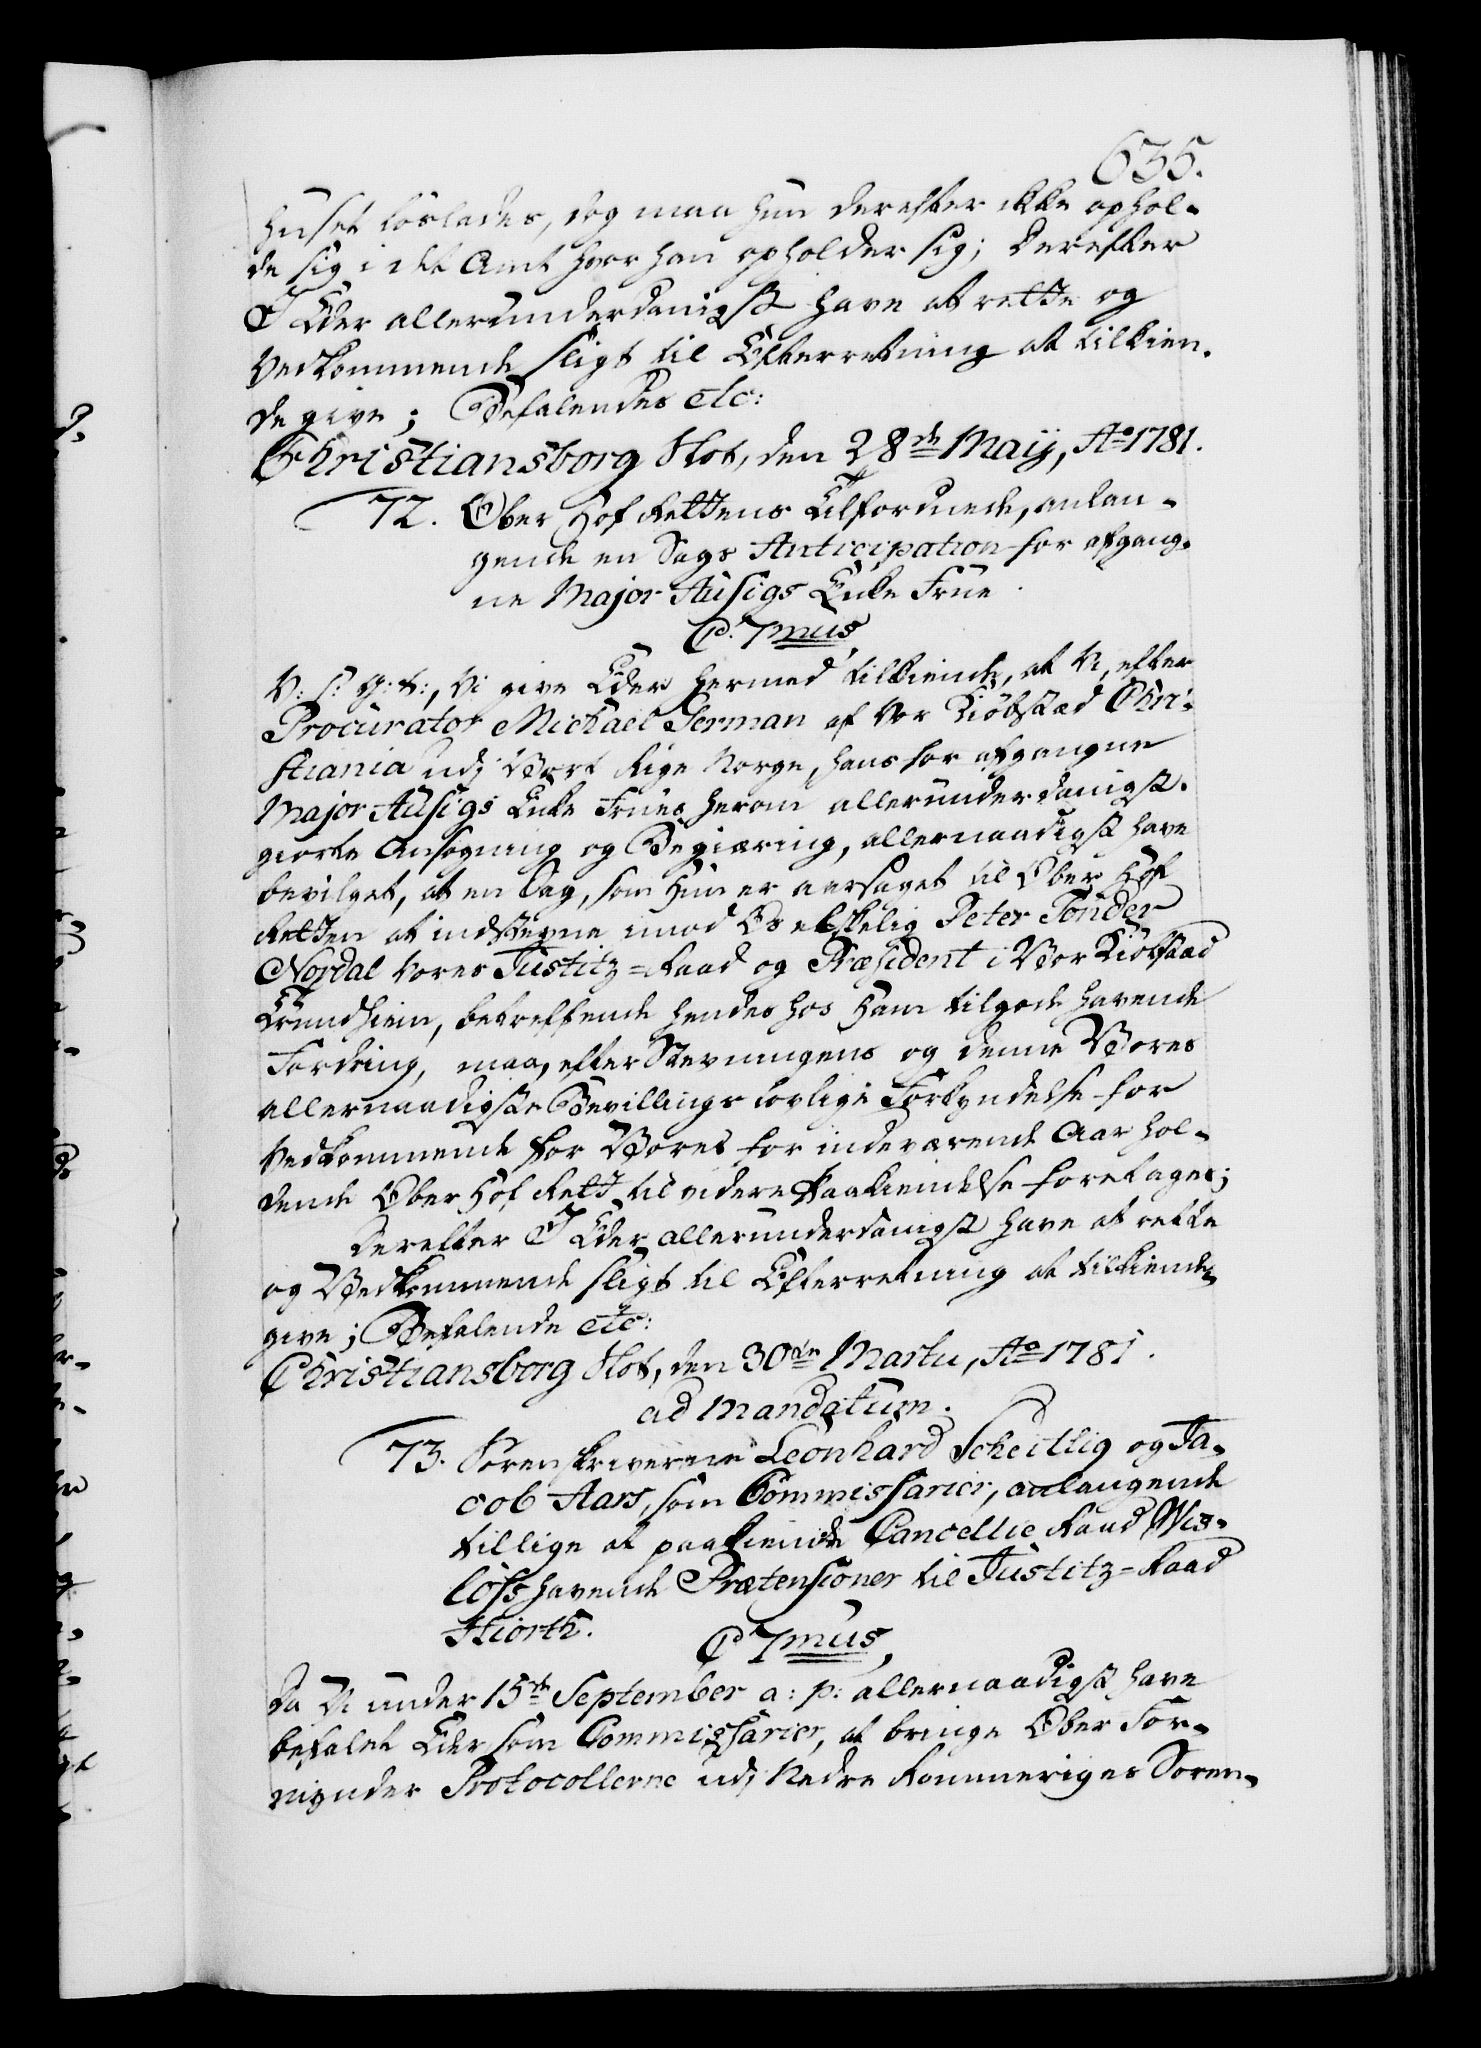 635.
huset løslades, dog maa hun derefter ikke ophol-
de sig i det Amt hvor han opholder sig; Derefter
I Eder allerunderdanigst have at rette og
Vedkommende sligt til Efterretning at tilkien-
de give; Befalendes etc:
Christiansborg Slot, den 28de Maij, Ao 1781.
72. Ober Hof Rettens Tilforordnede, anlan-
gende en Sags Anticipation for afgang-
ne Major Ausigs Enke Frue.
C. 7mus,
V: s: G: t:, Vi give Eder hermed tilkiende, at Vi, efter
Procurator Michael Serman af Vor Kiøbstæd Chri-
stiania udj Vort Rige Norge, hans for afgangne
Major Ausigs Enke Frues herom allerunderdanigst
giorte Ansøgning og Begiæring, allernaadigst have
bevilget, at en Sag, som Hun er aarsaget til Ober Hof
Retten at indstevne imod Os elskelig Peter Tønder
Nordal Vores Justitz-Raad og Præsident i Vor Kiøbstæd
Trundhiem, betreffende hendes hos Ham tilgode havende
Fordring, maa, efter Stevningens og denne Vores
allernaadigste Bevillings lovlige Forkyndelse for
Vedkommende for Vores for indeværende Aar hol-
dende Ober Hof Rett til videre Paakiendelse foretages;
Derefter I Eder allerunderdanigst have at rette
og Vedkommende sligt til Efterretning at tilkiende
give; Befalende etc:
Christiansborg Slot, den 30te Martii, Ao 1781.
ad mandatum.
73. Sorenskriverne Leonhard Scheitlig og Ja-
cob Aars, som Commissarier, anlangende
tillige at paakiende Cancellie Raad Wis-
løfs havende Prætensioner til Justitz-Raad
Hiorth.
C 7mus,
Da Vi under 15de September a: p: allernaadigst have
befalet Eder som Commissarier, at bringe Ober For-
mynder Protocollerne udj Nedre Rommeriges Soren-